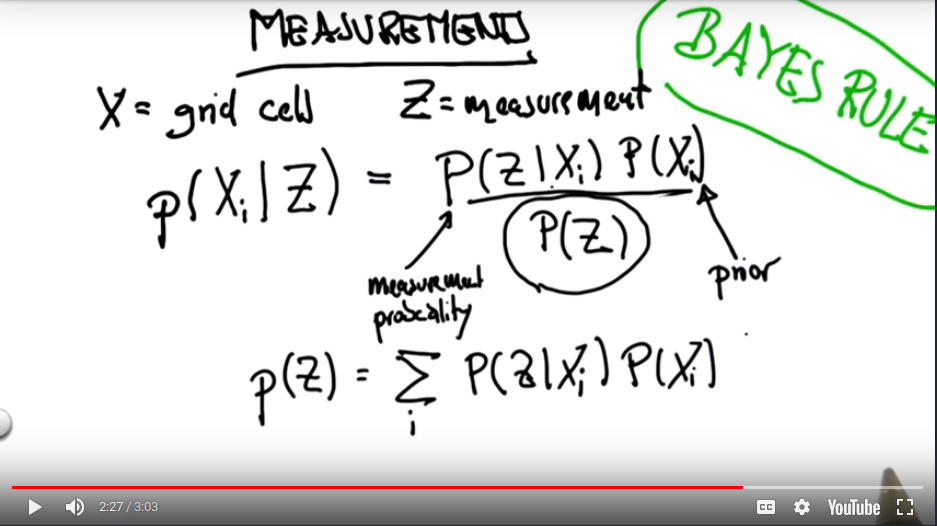 MEASUREMENTS
BAYES RULE
X = grid cell Z = measurement
p(Xi | Z) = P(Z | Xi) P(Xi)
P(Z)
measurement
probability
prior
p(Z) = Σ P(Z | Xi) P(Xi)
i
2:27 / 3:03
CC
YouTube